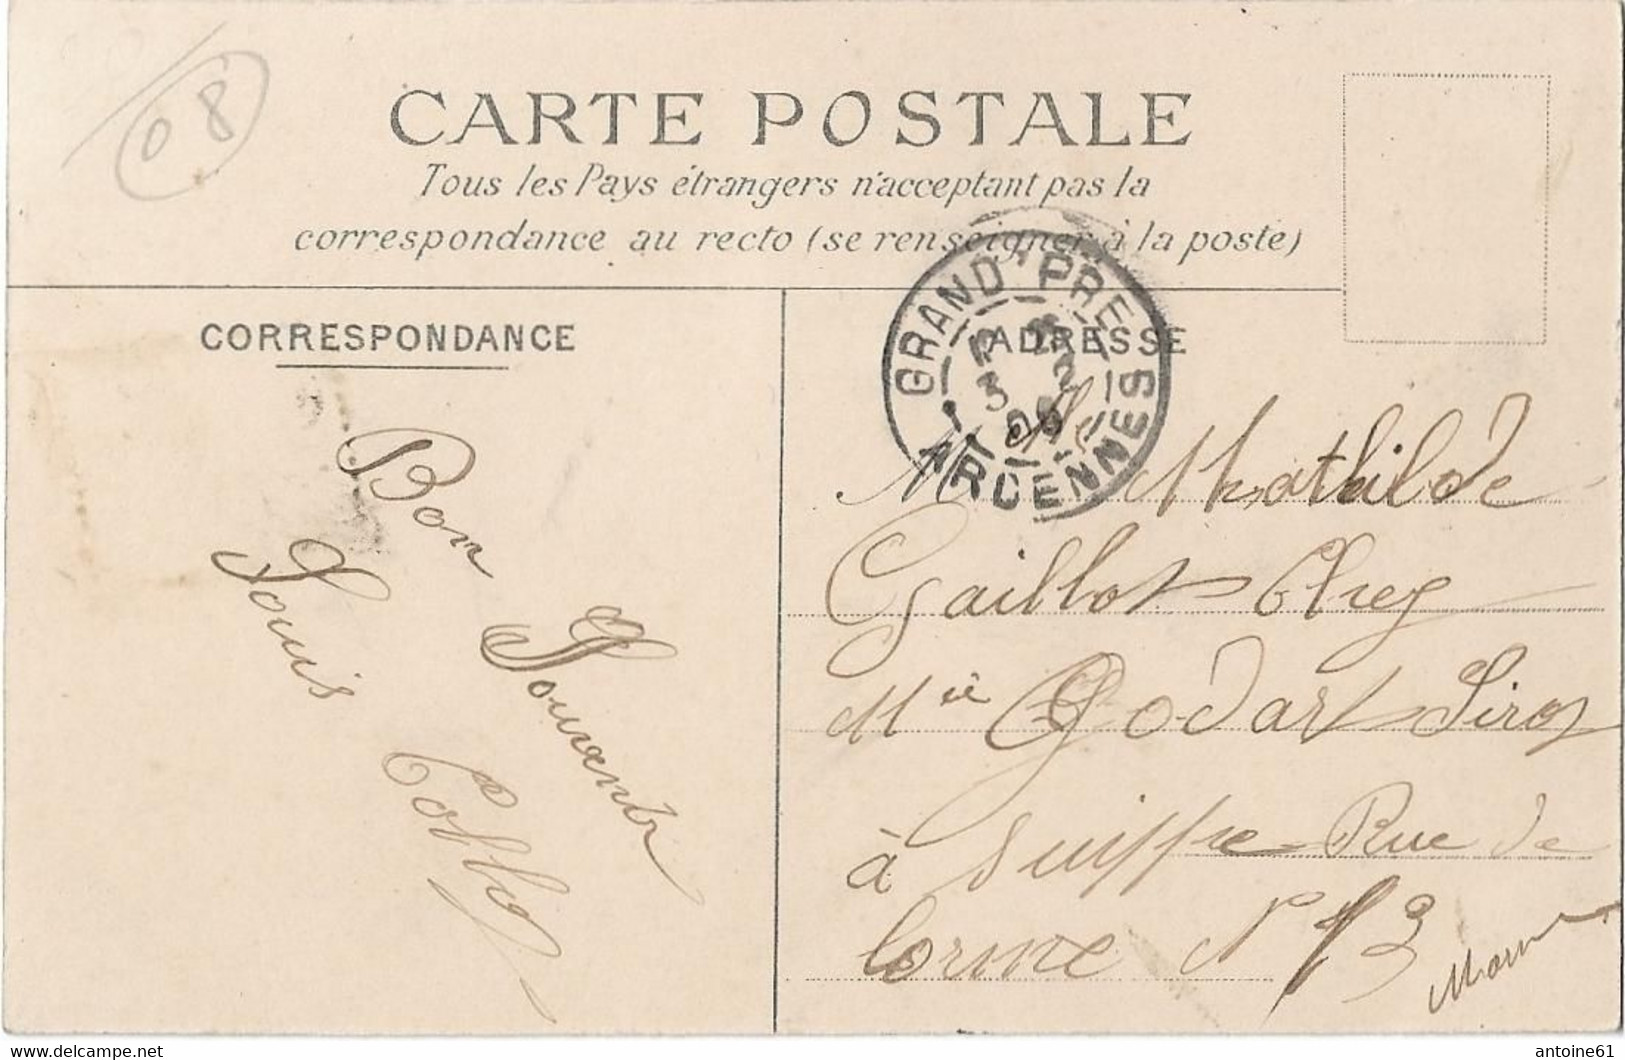 08
CARTE POSTALE
Tous les Pays étrangers n'acceptant pas la
correspondance au recto (se renseigner à la poste)
CORRESPONDANCE
ADRESSE
GRAND'PRE
ARDENNES
Bon Souvenir
Louis
Mathilde
Gaillot Chez
Godart
à Suippe Rue de
Lorme N 13
www.delcampe.net
antoine61